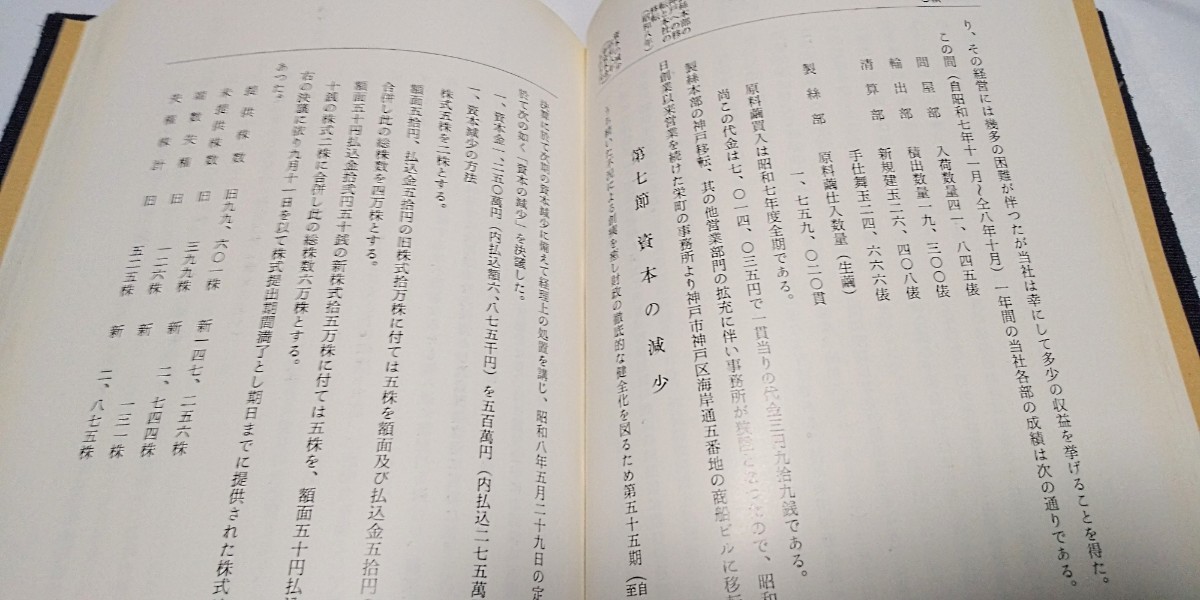 り、その経営には幾多の困難が伴つたが当社は幸にして多少の収益を挙げることを得た。
この間（自昭和七年十一月〜仝八年十月）一年間の当社各部の成績は次の通りである。
問屋部　入荷数量四一、八四五俵
輸出部　積出数量一九、三〇〇俵
清算部　新規建玉二六、四〇八俵
手仕舞玉二四、六六六俵
製絲部　原料繭仕入数量（生繭）
一、七五九、〇二〇貫
原料繭買入は昭和七年度全期である。
尚この代金は七、〇一四、〇三五円で一貫当りの代金三円九拾九銭である。
製絲本部の神戸移転、其の他営業部門の拡充に伴い事務所が ので、昭和
日創業以来営業を続けた栄町の事務所より神戸市神戸区海岸通五番地の商船ビルに移転
第七節　資本の減少
続いた不況による創痍を癒し財政の徹底的な健全化を図るため第五十五期（自至
決算に於て次期の資本減少に備えて経理上の処置を講じ、昭和八年五月二十九日の定
於て次の如く「資本の減少」を決議した。
一、資本金一、二五〇萬円（内払込額六、八七五千円）を五百萬円（内払込二七五萬
一、資本減少の方法
株式五株を二株とする。
額面五拾円、払込金五拾円の旧株式拾万株に付ては五株を額面及び払込金五拾円
合併し此の総株数を四万株とする。
額面五十円払込金拾弐円五十銭の新株式拾五万株に付ては五株を、額面五十円払込
十銭の株式二株に合併し此の総株数六万株とする。
右の決議に依り九月十一日を以て株式提出期間満了とし期日までに提供された株式
あつた。
提供株数　旧九九、六〇一株　新一四七、二五六株
未提供株数　旧　三九九株　新　二、七四四株
端数失権　旧　一二六株　新　一三一株
失権株計　旧　五二五株　新　二、八七五株